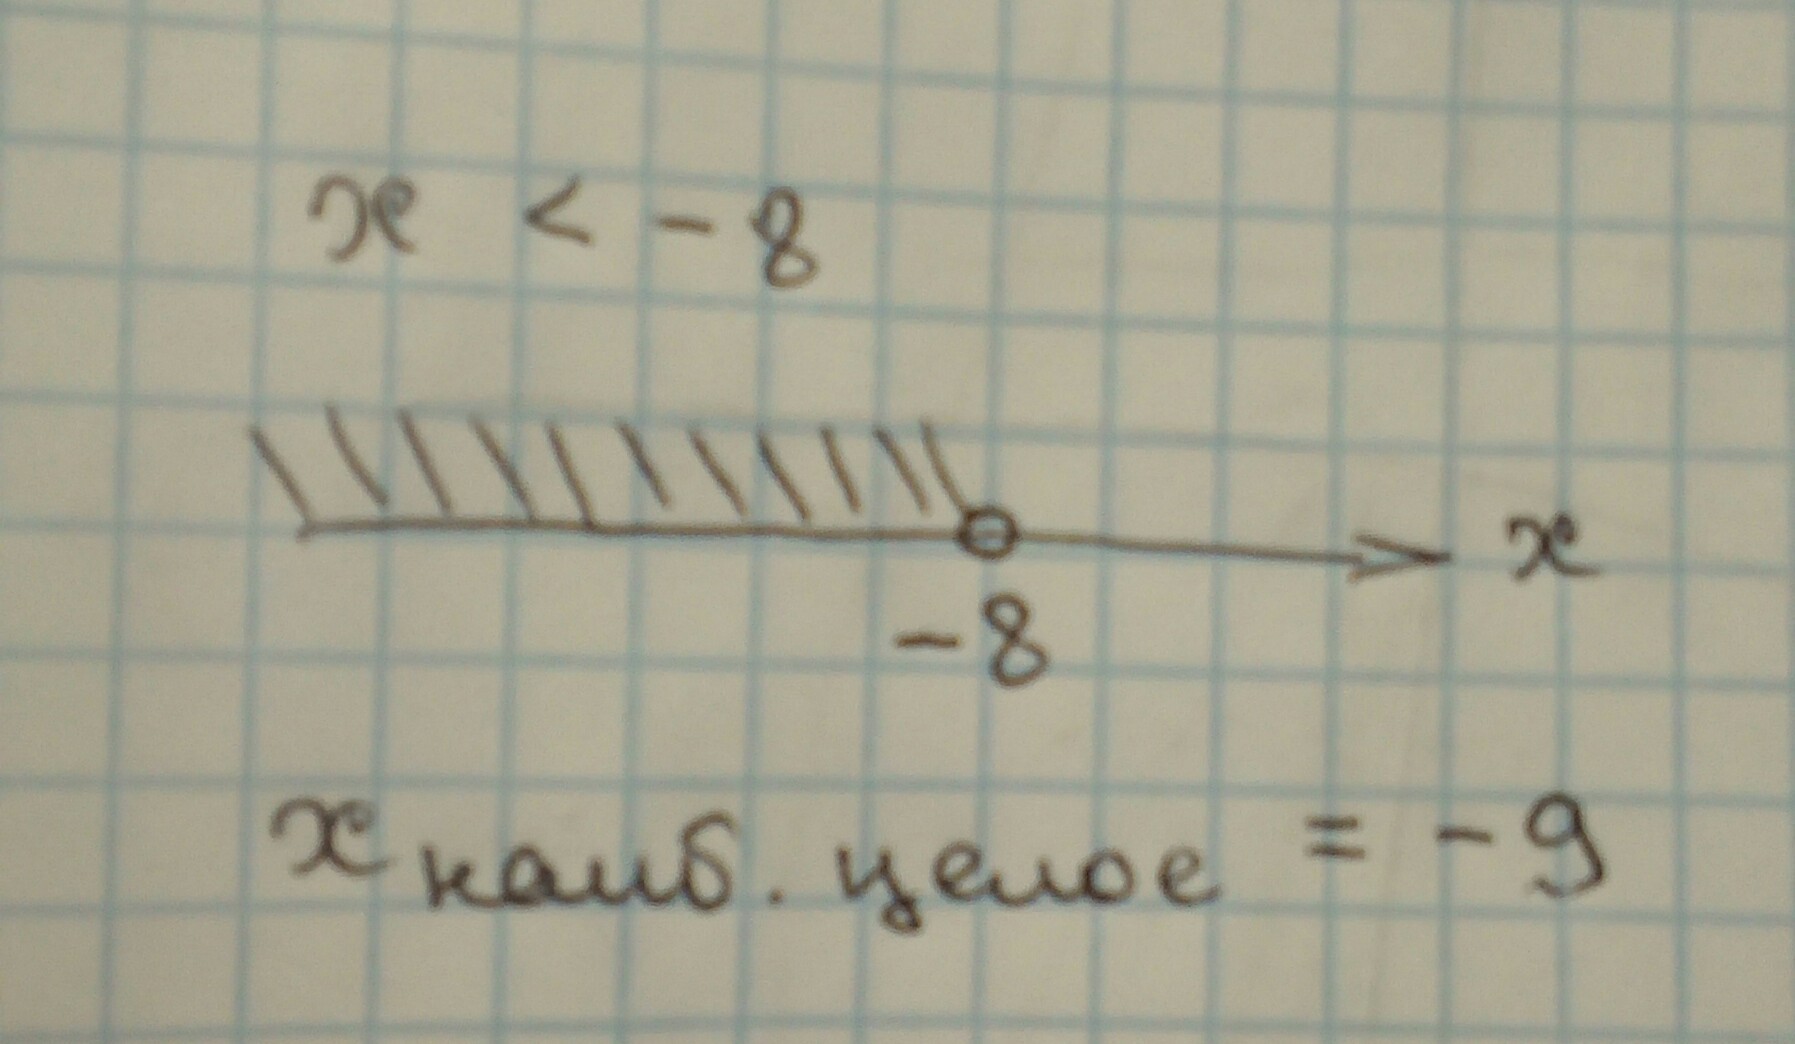 x < -8
x
-8
x наиб. целое = -9